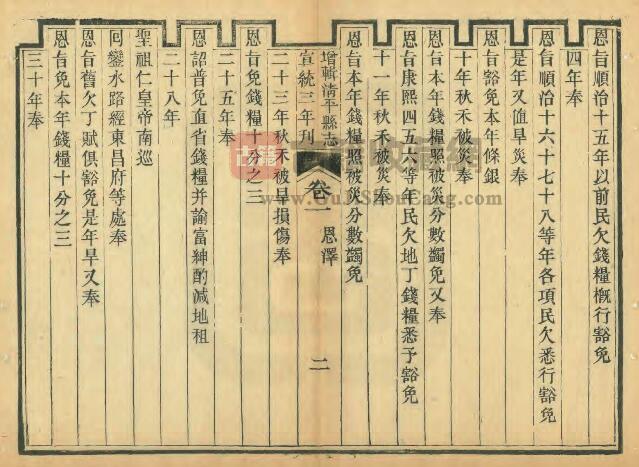 恩旨順治十五年以前民欠錢糧概行豁免
四年奉
恩旨順治十六十七十八等年各項民欠悉行豁免
是年又值旱災奉
恩旨豁免本年條銀
十年秋禾被災奉
恩旨本年錢糧照被災分數蠲免又奉
恩旨康熙四五六等年民欠地丁錢糧悉予豁免
十一年秋禾被災奉
恩旨本年錢糧照被災分數蠲免
增輯清平縣志
宣統三年刊
卷一 恩澤
二
二十三年秋禾被旱損傷奉
恩旨免錢糧十分之三
二十五年奉
恩詔普免直省錢糧并諭富紳酌減地租
二十八年
聖祖仁皇帝南巡
回鑾水路經東昌府等處奉
恩旨舊欠丁賦俱豁免是年旱又奉
恩旨免本年錢糧十分之三
三十年奉
古籍
www.GuJiShouCang.com